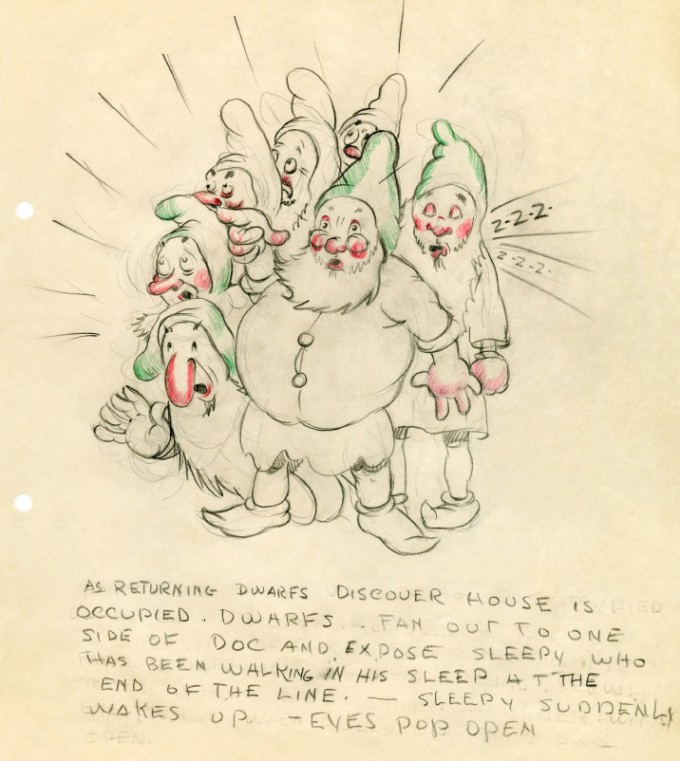 Z-Z-Z.
Z-Z-Z.
AS RETURNING DWARFS DISCOVER HOUSE IS
OCCUPIED. DWARFS - FAN OUT TO ONE
SIDE OF DOC AND EXPOSE SLEEPY, WHO
HAS BEEN WALKING IN HIS SLEEP AT THE
END OF THE LINE. — SLEEPY SUDDENLY
WAKES UP - EYES POP OPEN
OPEN.